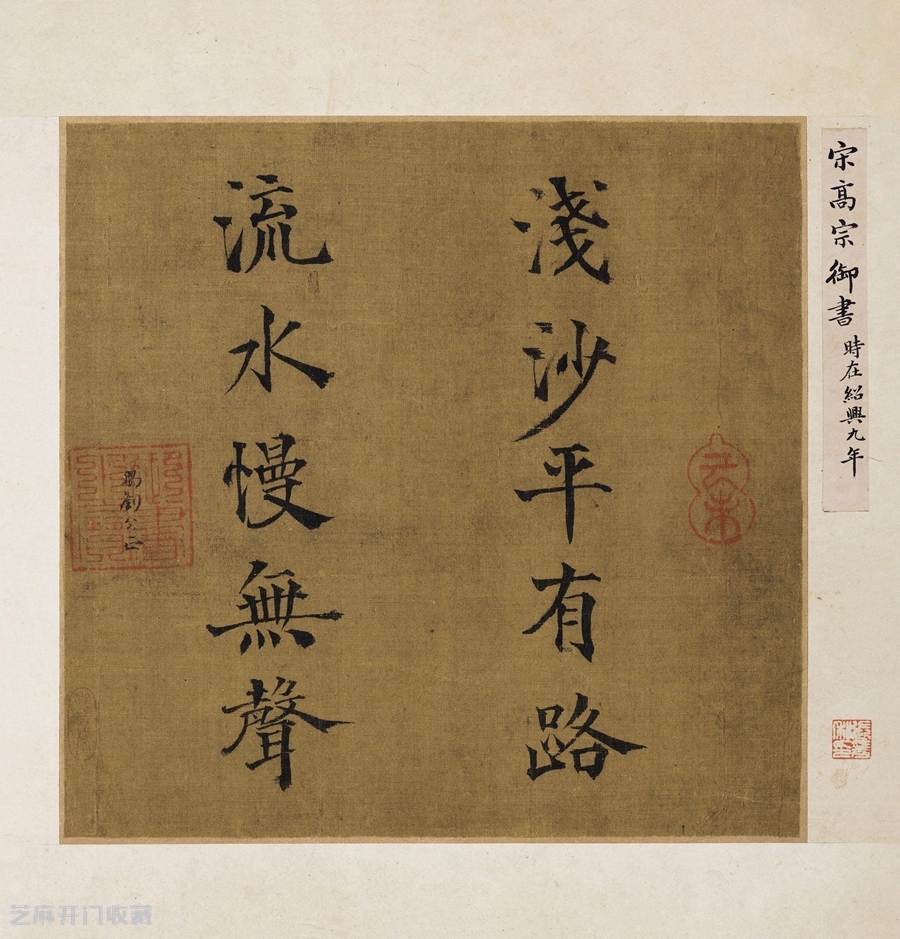 宋高宗御書 時在紹興九年
淺沙平有路
流水慢無聲
芝麻开门收藏